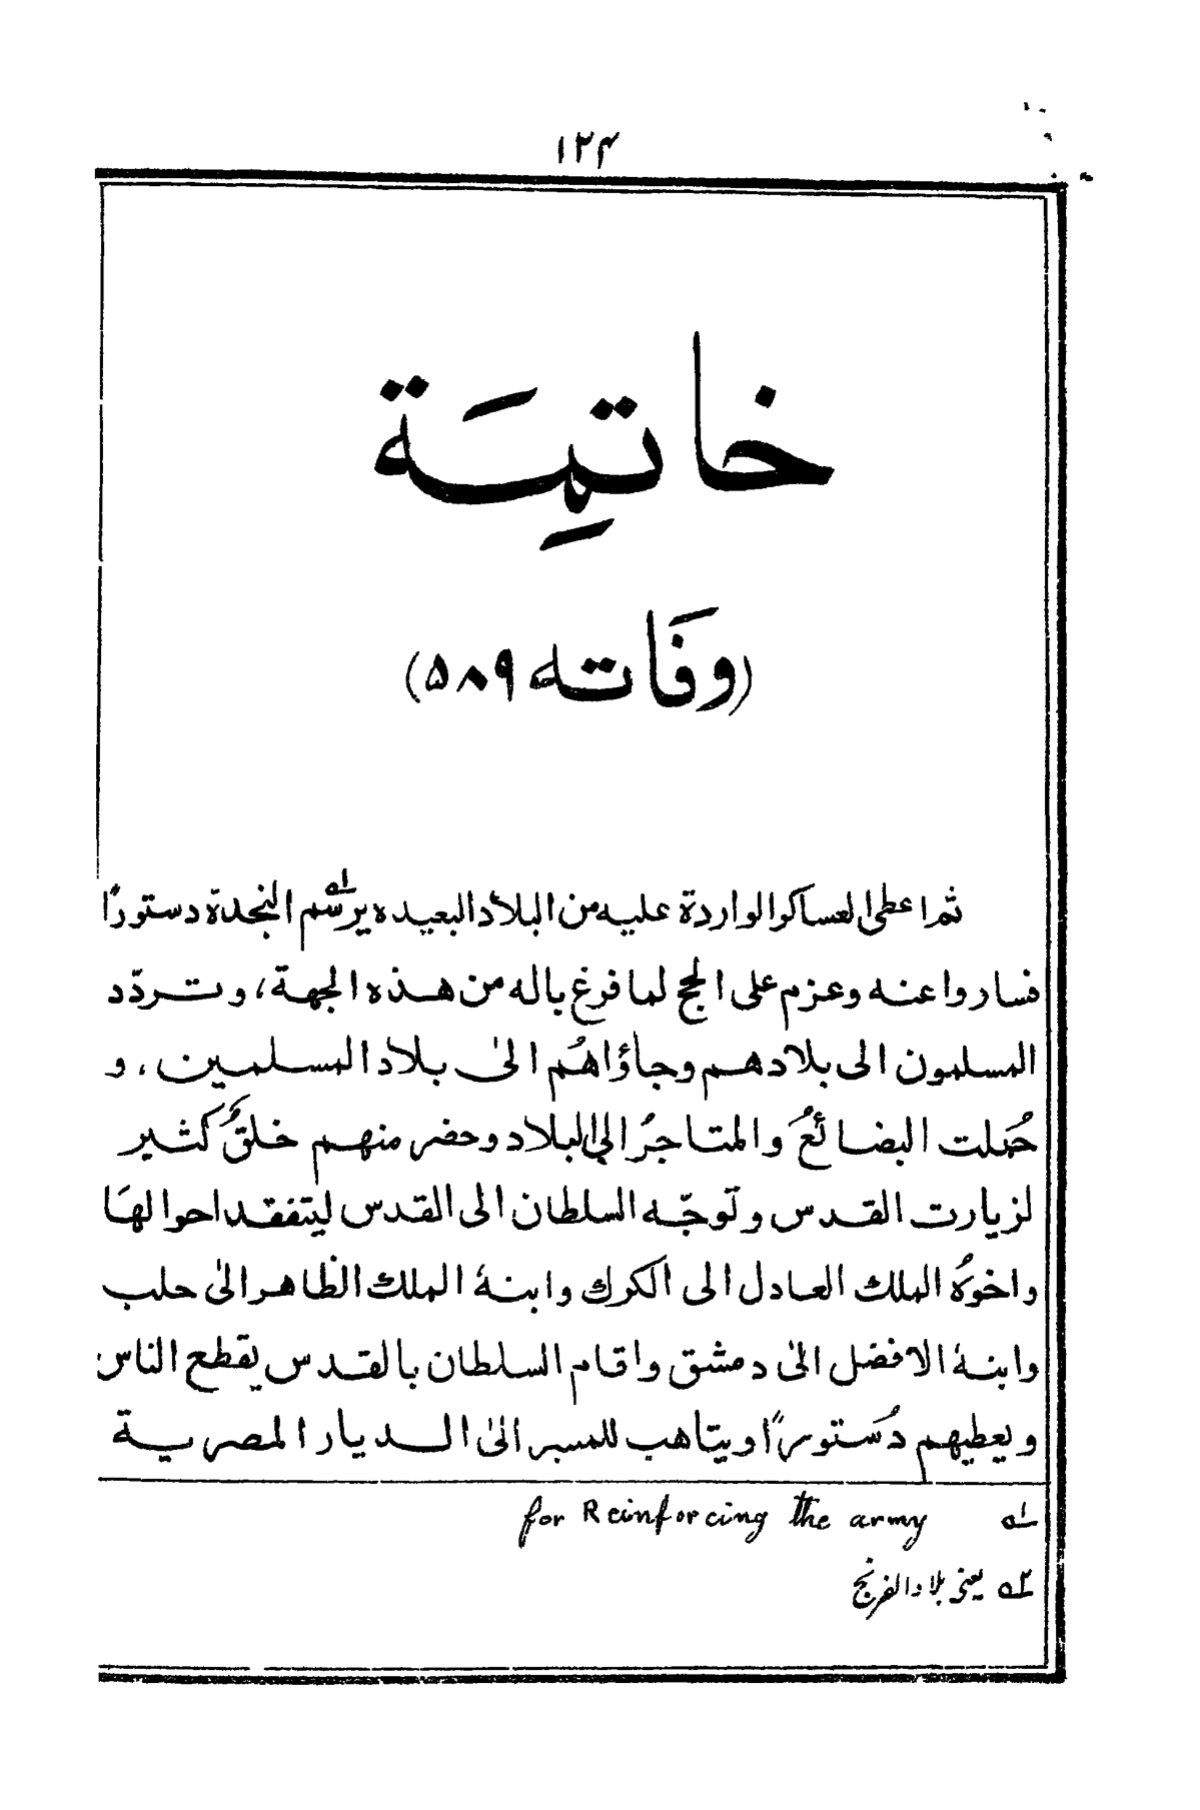 ۱۲۴
خاتِمَة
(وفَاته ۵۸۹)
ثم اعطى العساكر الواردة عليه من البلاد البعيده برسْم له النجدة دستورًا
فساروا عنه وعزم على الحج لما فرغ باله من هذه الجهة، و تردّد
المسلمون الى بلادهم وجاؤاهُم الىٰ بلاد المسلمين ، و
حُملت البضائعُ والمتاجرُ الى البلاد وحضر منهم خلقٌ كثير
لزيارت القدس وتَوجّه السلطان الى القدس ليتفقد احوالهَا
واخوهُ الملك العادل الى الكرك وابنهُ الملك الظاهر الىٰ حلب
وابنهُ الافضل الىٰ دمشق واقام السلطان بالقدس يقطع الناس
ويعطيهم دُستورًا ويتاهب للمسير الىٰ الديار المصرية
له for Reinforcing the army
ــه۲ يعنى بلاد الفرنج